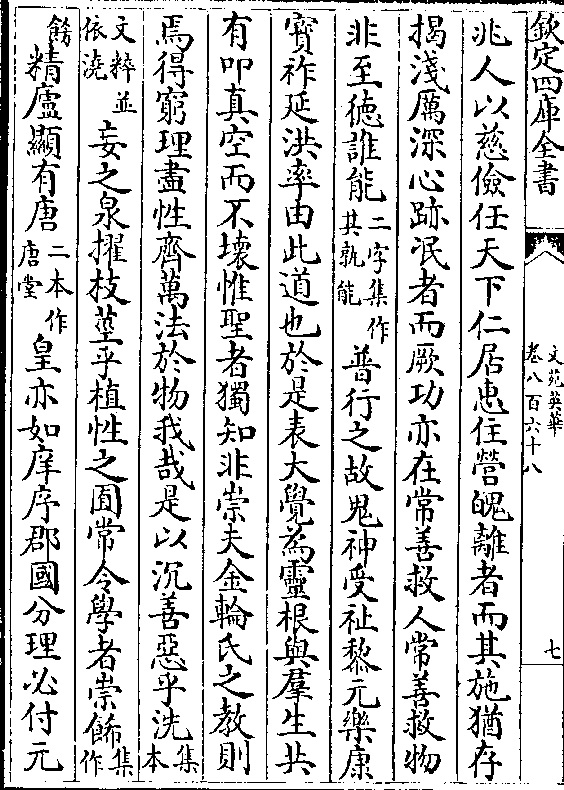 欽定四庫全書
文苑英華
卷八百六十八
七
兆人以慈儉任天下仁居惠住營魄離者而其施猶存
揭淺厲深心跡泯者而厥功亦在常善救人常善救物
非至德誰能二字集作其孰能普行之故鬼神受祉黎元樂康
寳祚延洪率由此道也於是表大覺為靈根與羣生共
有叩真空而不壊惟聖者獨知非崇夫金輪氏之教則
焉得窮理盡性齊萬法於物我哉是以沉善惡乎洗集本
文粹並依澆妄之泉擢枝莖乎植性之囿常令學者崇餙集作
餝精廬顯有唐二本作唐堂皇亦如庠序郡國分理必付元